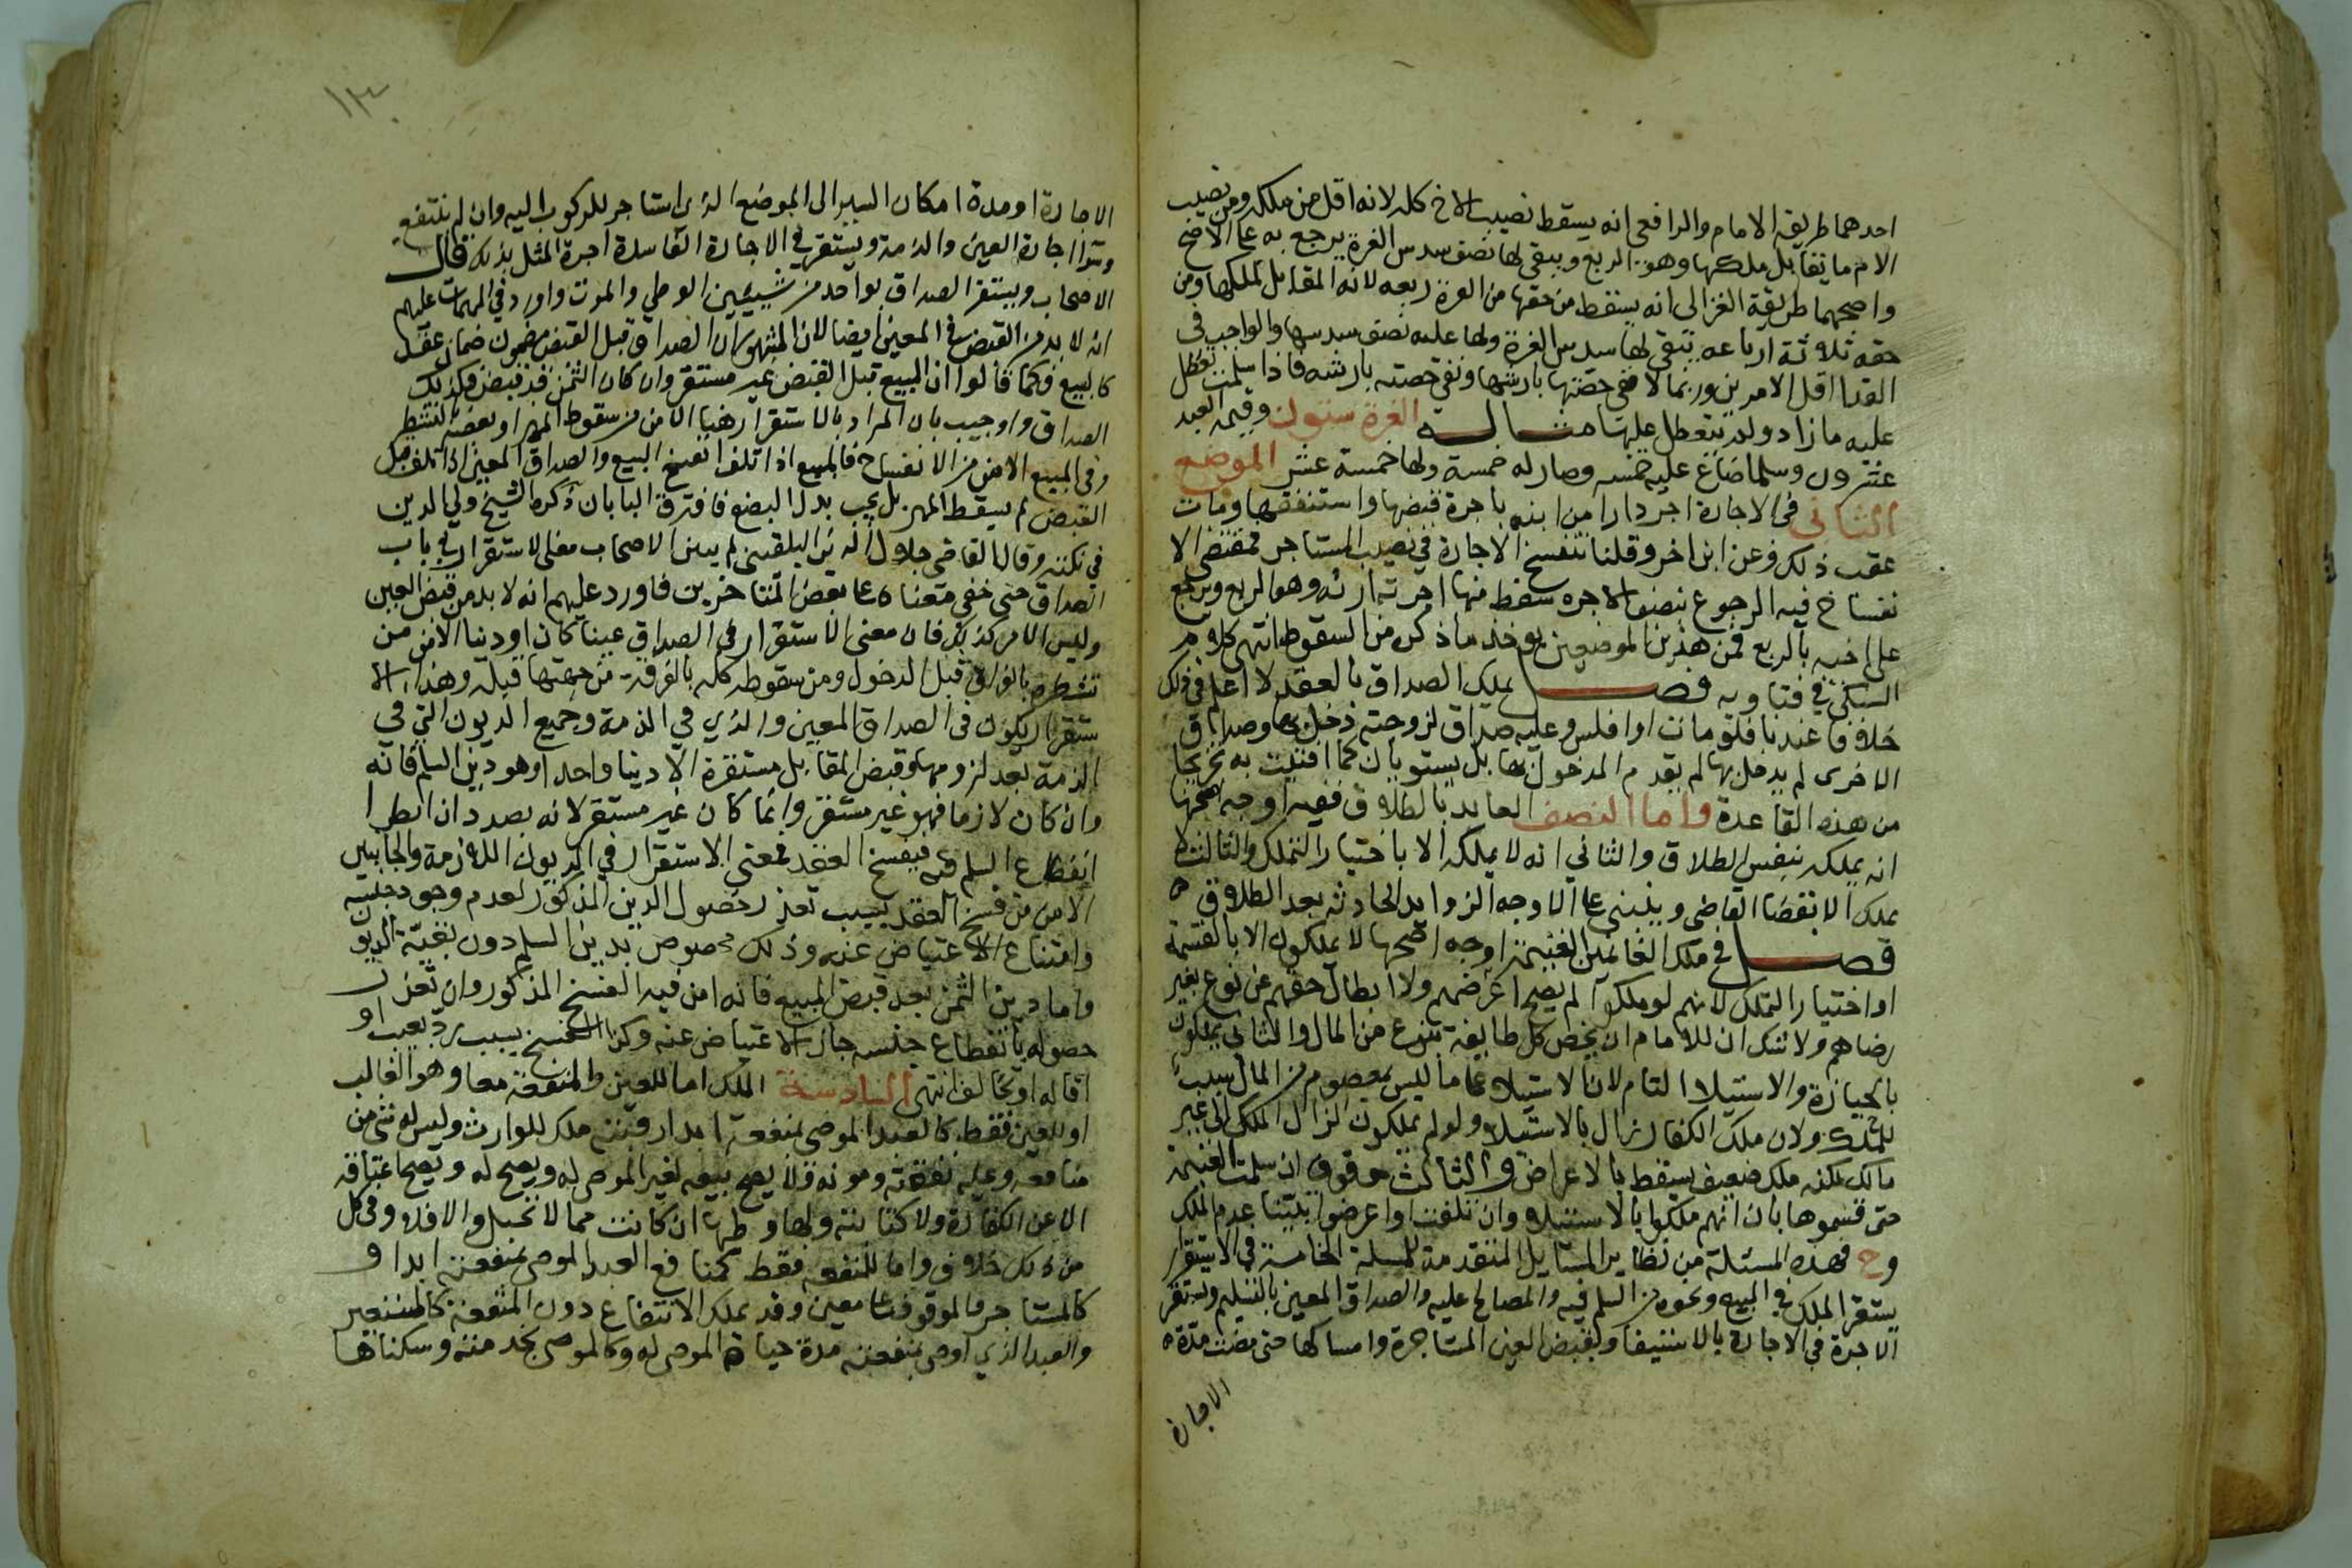 احدهما طريقة الامام والرافعي انه يسقط نصيب الاخ كله لانه اقل من ملكه ومن نصيب
الام ما يقابل ملكها وهو الربع ويبقى لها نصف سدس الغرة يرجع به على الاخ
واصحهما طريقة الغزالى انه يسقط من حقها من الغرة ربعه لانه المقابل لملكها ومن
حقه ثلاثة ارباعه يبقى لها سدس الغرة ولها عليه نصف سدسها والواجب في
الفدا اقل الامرين وربما لا تفي حصتها بارشها وتفي حصته بارشه فاذا سلمت تعطل
عليه ما زاد ولم يتعطل عليها مثاله الغرة ستون وقيمة العبد
عشرون وسلما ضاع عليه خمسه وصار له خمسة ولها خمسة عشر الموضع
الثاني في الاجارة اجر دارا من ابنه باجرة قبضها واستنفقها ومات
عقب ذلك وعن ابن اخر وقلنا تنفسخ الاجارة في نصيب المستاجر فمقتضى الا
نفساخ فيه الرجوع بنصف الاجره سقط منها اجرة ارثه وهو الربع ويرجع
على اخيه بالربع فمن هذين الموضعين يوخذ ما ذكره من السقوط انتهى كلام
السبكي في فتاويه فصل يملك الصداق بالعقد لا اعلم في ذلك
خلافا عندنا فلو مات او افلس وعليه صداق لزوجته دخل بها وصداق
الاخرى لم يدخل بها لم يقدم المدخول بها بل يستويان كما افتيت به تخريجا
من هذه القاعدة واما النصف العايد بالطلاق ففيه اوجه اصحها
انه يملكه بنفس الطلاق والثاني انه لا يملكه الا باختيار التملك والثالث لا
يملك الا بقضا القاضي وينبني على الاوجه الزوايد الحادثه بعد الطلاق
فصل في ملك الغانمين الغنيمة اوجه اصحها لا يملكون الا بالقسمة
او اختيار التملك لانهم لو ملكوا لم يصح اعرضهم ولا ابطال حقهم عن نوع بغير
رضاهم ولا شك ان للامام ان يخص كل طايفة بنوع من المال والثاني يملكون
بالحيازة والاستيلا التام لان الاستيلا على ما ليس بمعصوم من المال سبب
للملك ولان ملك الكفار زال بالاستيلا ولو لم يملكون لزال الملك الى غير
مالك لكنه ملك ضعيف يسقط بالاعراض والثالث موقوف ان سلمت الغنيمة
حتى قسموها بان انهم ملكوا بالاستيلا وان تلفت او اعرضوا تبينا عدم الملك
وح فهذه المسئلة من نظاير المسايل المتقدمة المسلة الخامسة في الاستقرار
يستقر الملك في المبيع ونحوه من السلم فيه والمصالح عليه والصداق المعين بالتسليم وتستقر
الاجرة في الاجارة بالاستيفا وبقبض العين المستاجرة وامساكها حتى مضت مدة
الاجارة
١٣
الاجارة او مدة امكان السير الى الموضع الذي استاجر للركوب اليه وان لم ينتفع
وسوا اجارة العين والذمة ويستقر في الاجارة الفاسدة اجرة المثل بذلك قال
الاصحاب ويستقر الصداق بواحد من شيئين الوطي والموت واورد في المهمات عليهم
انه لا بد من القبض في المعين ايضا لان المشهور ان الصداق قبل القبض مضمون ضمان عقد
كالبيع فكما قالوا ان المبيع قبل القبض غير مستقر وان كان الثمن قد قبض فكذلك
الصداق واوجيب بان المراد بالاستقرار هنا الامن من سقوط المهر او بعضه بالتشطر
وفي المبيع الامن من الانفساخ فالمبيع اذا تلف انفسخ البيع والصداق المعين اذا تلف قبل
القبض لم يسقط المهر بل يجب بدل البضع فافترق البابان ذكره الشيخ ولي الدين
في نكته وقال القاضي جلال الدين البلقيني لم يبين الاصحاب معنى الاستقرار في باب
الصداق حتى خفي معناه على بعض المتاخرين فاورد عليهم انه لا بد من قبض العين
وليس الامر كذلك فان معنى الاستقرار في الصداق عينا كان او دينا الامن من
تشطره بالفراق قبل الدخول ومن سقوطه كله بالفرقة من جهتها قبله وهذا الا
ستقرار يكون في الصداق المعين والذي في الذمة وجميع الديون التي في
الذمة بعد لزومها وقبض المقابل مستقرة الا دينا واحدا وهو دين السلم فانه
وان كان لازما فهو غير مستقر وانما كان غير مستقر لانه بصدد ان يطرا
انقطاع السلم فيه فيفسخ العقد فمعنى الاستقرار في الديون اللازمة من الجانبين
الامن من فسخ العقد بسبب تعذر حصول الدين المذكور لعدم وجود جنسه
وامتناع الاعتياض عنه وذلك مخصوص بدين السلم دون بقية الديون
واما دين الثمن بعد قبض المبيع فانه امن فيه الفسخ المذكور وان تعذر
حصوله بانقطاع جنسه جاز الاعتياض عنه وكذا الفسخ بسبب رد بعيب او
اقاله او تحالف انتهى السادسة الملك اما للعين والمنفعة معا وهو الغالب
او للعين فقط كالعبد الموصى بمنفعته ابدا رقبته ملك للوارث وليس له شي من
منافعه وعليه نفقته ومونه ولا يصح بيعه لغير الموصى له ويصح له ويصح اعتاقه
الا عن الكفارة ولا كتابته وله وطيها ان كانت مما لا تحبل والا فلا وفي كل
من ذلك خلاف واما للمنفعه فقط كمنافع العبد الموصى بمنفعته ابدا و
كالمستاجر والموقوف على معين وقد يملك الانتفاع دون المنفعة كالمستعير
والعبد الذي اوصى بمنفعته مدة حياة الموصى له وكالموصى بخدمته وسكناها